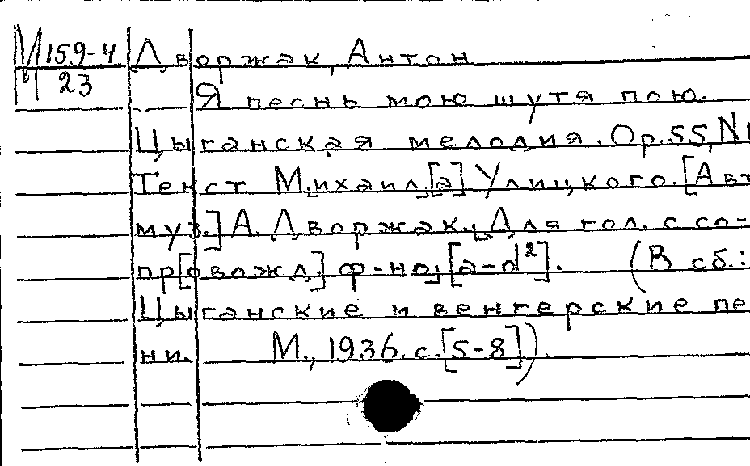 М 159-4
в 23
Дворжак, Антон
Я песнь мою шутя пою.
Цыганская мелодия. Op. 55, N1
Текст Михаил[а] Улицкого. [Авт.
муз.] А. Дворжак. Для гол. с со-
пр[овожд.] ф-но, [a-d²]. (В сб.:
Цыганские и венгерские пе
ни. М., 1936. с. [5-8]).